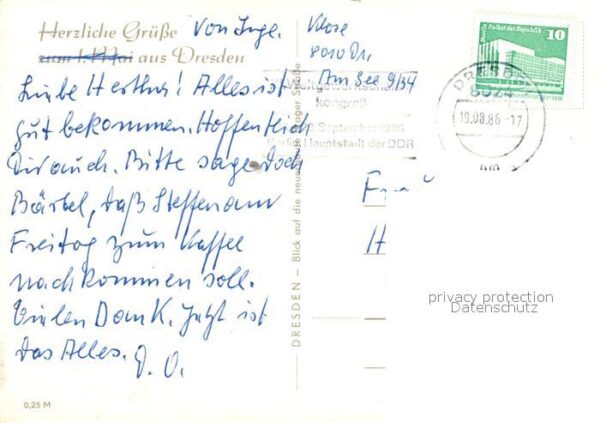 Herzliche Grüße
zum 1. Mai aus Dresden
von Inge.
Klose
8010 Dr.
Am See 9/34
Liebe Hertha! Alles ist
gut bekommen. Hoffentlich
Dir auch. Bitte sage doch
Bärbel, daß Steffen am
Freitag zum Kaffee
nachkommen soll.
Vielen Dank. Jetzt ist
das Alles. D. O.
0,25 M
DRESDEN — Blick auf die neue Prager Straße
Weltgewerkschafts
kongreß
September 1986
Berlin Hauptstadt der DDR
Berlin Palast der Republik
10
DRESDEN
8024
19.08.86-17
hm
Frau
H
privacy protection
Datenschutz